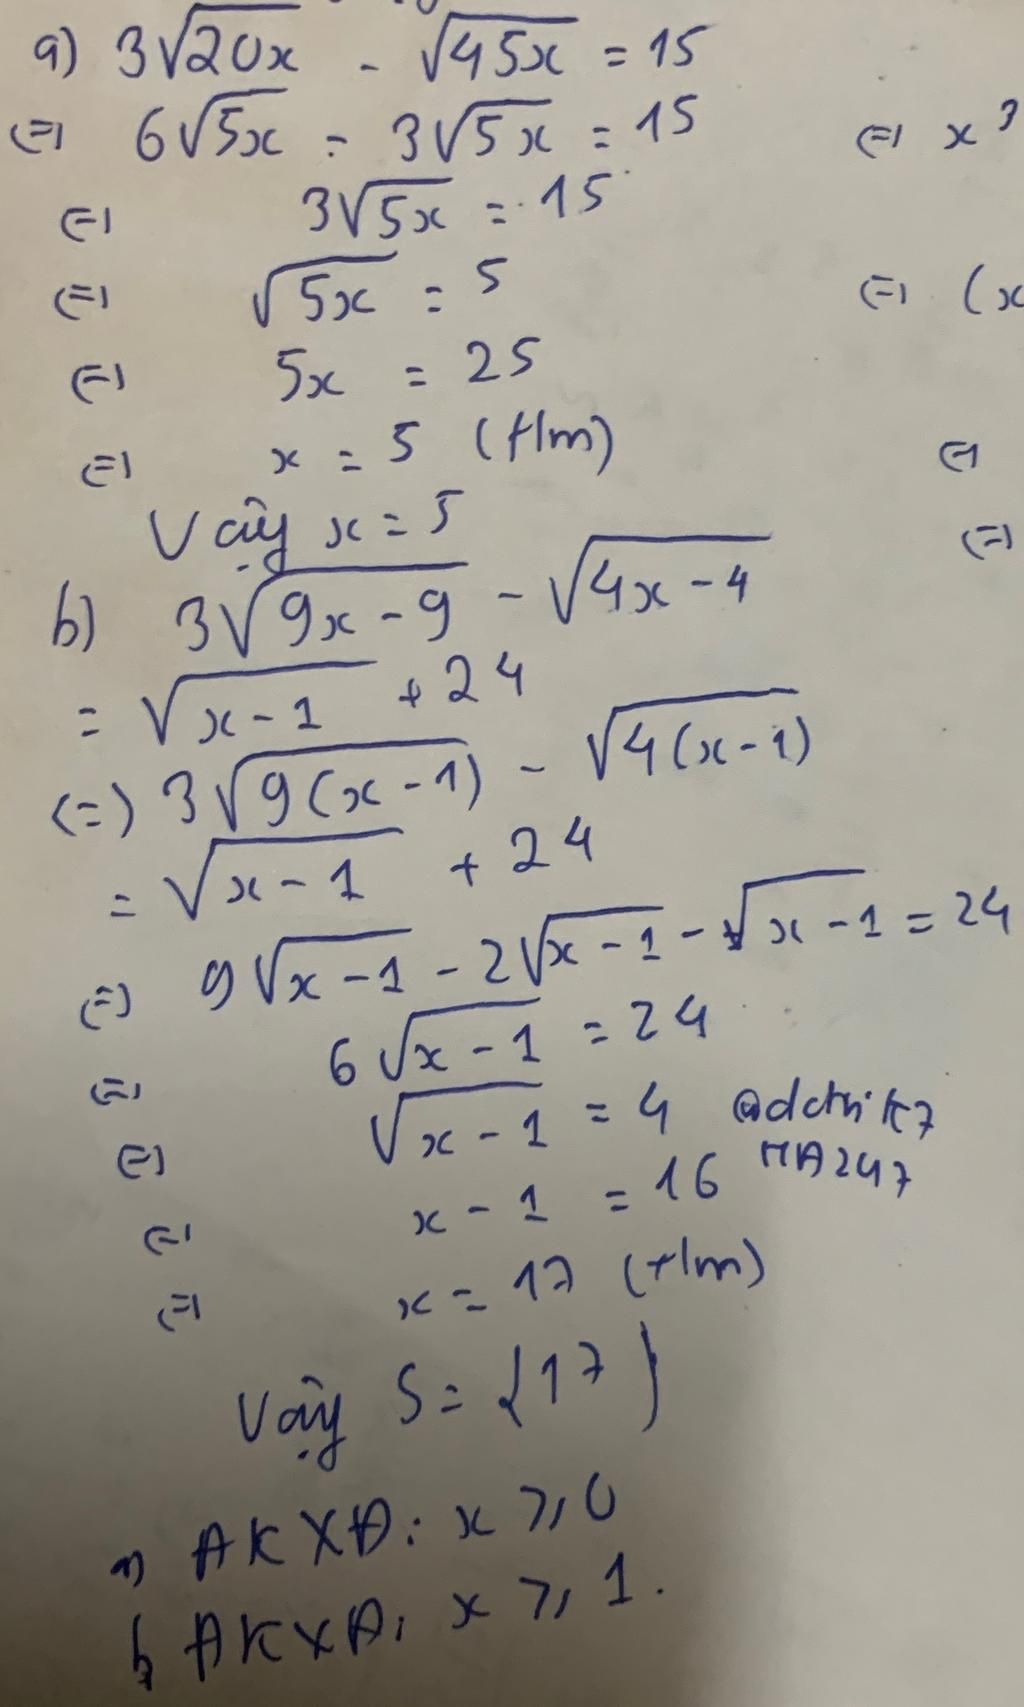 a) 3√20x - √45x = 15
(=) 6√5x - 3√5x = 15
(=) x³
(=) 3√5x = 15
(=) √5x = 5
(=) (x
(=) 5x = 25
(=) x = 5 (t/m)
(=)
Vậy x = 5
(=)
b) 3√9x - 9 - √4x - 4
= √x - 1 + 24
(=) 3√9(x - 1) - √4(x - 1)
= √x - 1 + 24
(=) 9√x - 1 - 2√x - 1 - √x - 1 = 24
(=) 6√x - 1 = 24
(=) √x - 1 = 4
(=) x - 1 = 16
MA247
(=) x = 17 (t/m)
Vậy S = {17}
a) ĐKXĐ: x ≥ 0
b, ĐKXĐ: x ≥ 1.